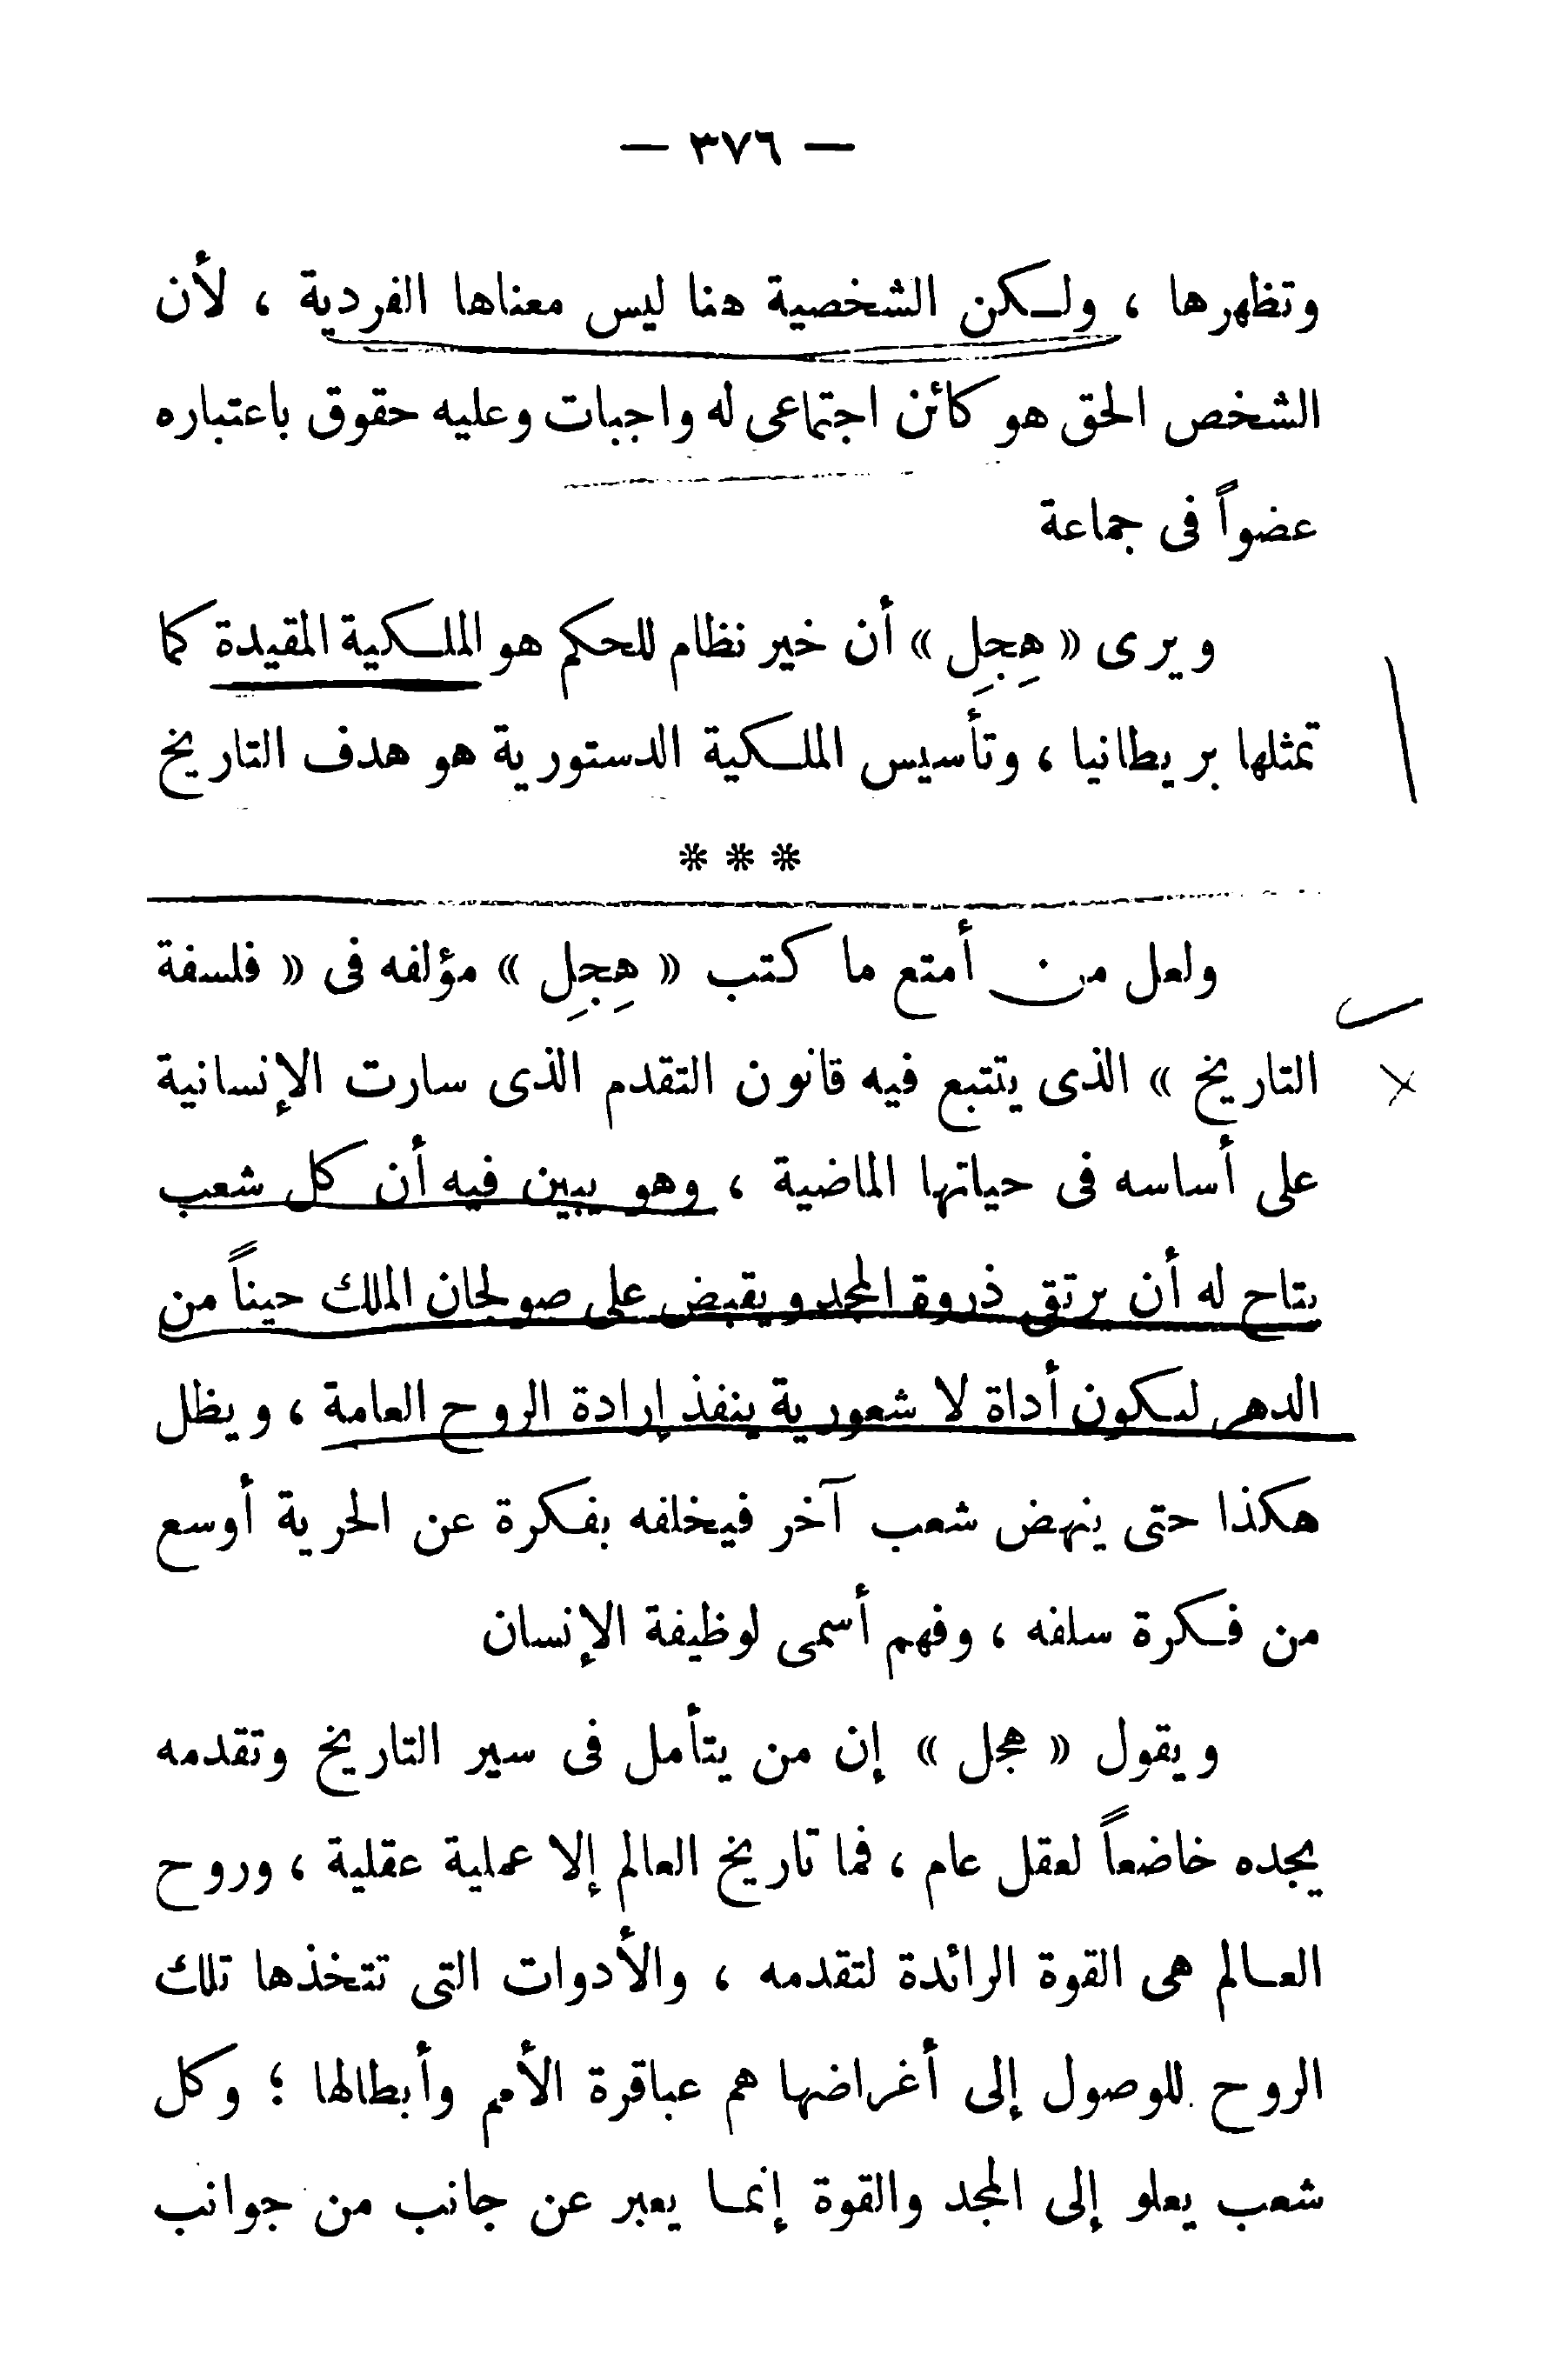 — ٣٧٦ —
وتظهرها ، ولكن الشخصية هنا ليس معناها الفردية ، لأن
الشخص الحق هو كائن اجتماعى له واجبات وعليه حقوق باعتباره
عضواً فى جماعة
ويرى « هِجِل » أن خير نظام للحكم هو الملكية المقيدة كما
تمثلها بريطانيا ، وتأسيس الملكية الدستورية هو هدف التاريخ
* * *
ولعل من أمتع ما كتب « هِجِل » مؤلفه فى « فلسفة
التاريخ » الذى يتتبع فيه قانون التقدم الذى سارت الإنسانية
على أساسه فى حياتها الماضية ، وهو يبين فيه أن كل شعب
يتاح له أن يرتقى ذروة المجد ويقبض على صولجان الملك حيناً من
الدهر ليكون أداة لا شعورية ينفذ إرادة الروح العامة ، ويظل
هكذا حتى ينهض شعب آخر فيخلفه بفكرة عن الحرية أوسع
من فكرة سلفه ، وفهم أسمى لوظيفة الإنسان
ويقول « هجل » إن من يتأمل فى سير التاريخ وتقدمه
يجده خاضعاً لعقل عام ، فما تاريخ العالم إلا عملية عقلية ، وروح
العالم هى القوة الرائدة لتقدمه ، والأدوات التى تتخذها تلك
الروح للوصول إلى أغراضها هم عباقرة الأمم وأبطالها ؛ وكل
شعب يعلو إلى المجد والقوة إنما يعبر عن جانب من جوانب